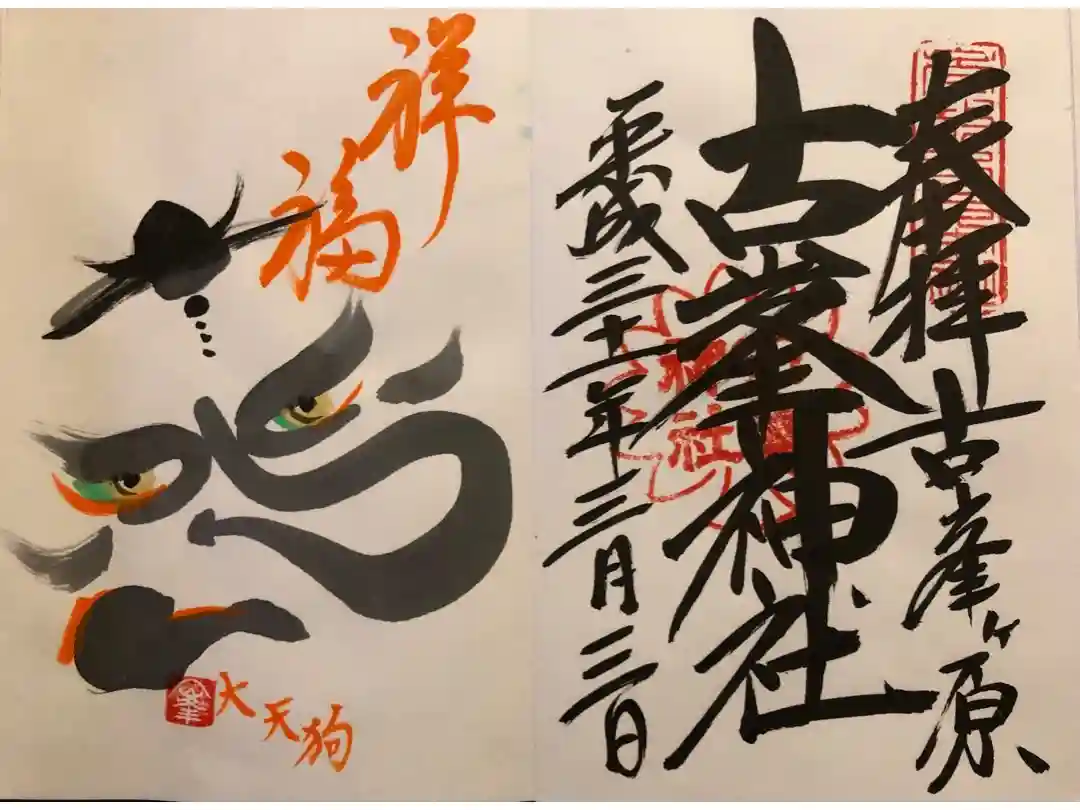 奉拝 古峯ヶ原
古峯神社
平成三十一年三月三日
神社
祥福
大天狗
峯